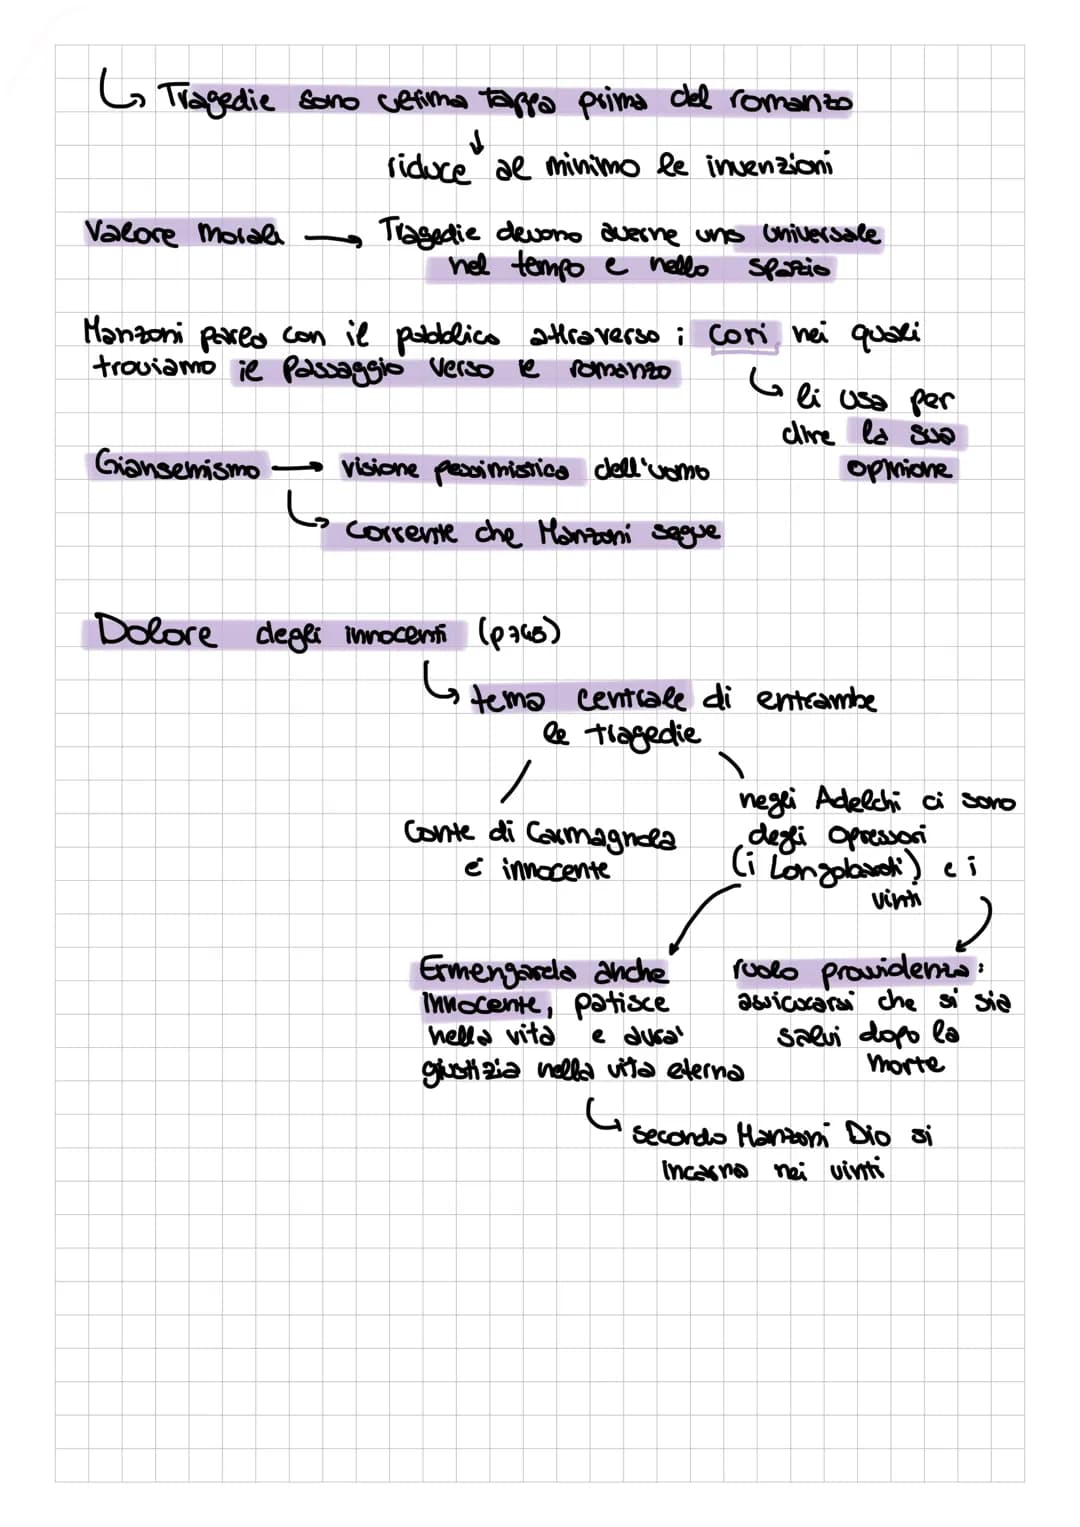 Tragedie sono ultima tappa prima del romanzo
riduce al minimo le invenzioni
Valore Morali → Tragedie devono averne uno universale
nel tempo e nello spazio
Manzoni parla con il pubblico attraverso i cori nei quali
troviamo il passaggio verso il romanzo
li usa per
dire la sua
opinione
Giansemismo → visione pessimistica dell'uomo
Corrente che Manzoni segue
Dolore degli innocenti (p748)
tema centrale di entrambe
le tragedie
Conte di Carmagnola
é innocente
negli Adelchi ci sono
degli Opressori
(i Longobardi) e i
vinti
Ermengarda anche
innocente, patisce
nella vita e avra'
giustizia nella vita eterna
ruolo providenza:
assicurarsi che si sia
salvi dopo la
morte
secondo Manzoni Dio si
incarna nei vinti